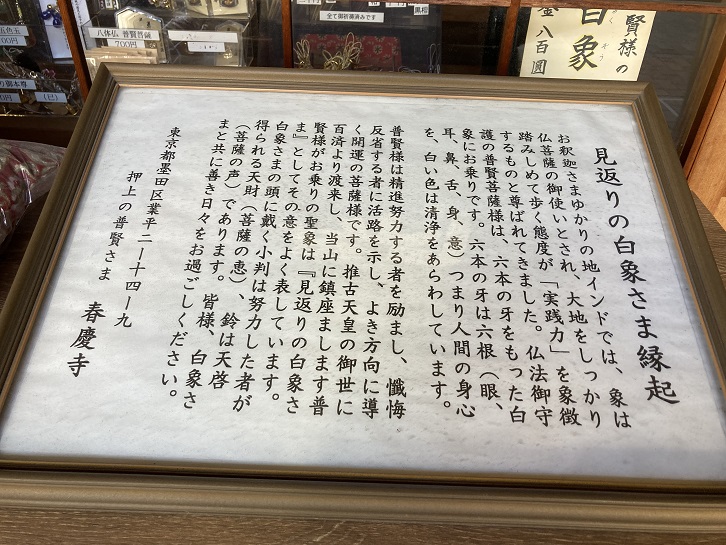 見返りの白象さま縁起
お釈迦さまゆかりの地インドでは、象は
仏菩薩の御使いとされ、大地をしっかり
踏みしめて歩く態度が「実践力」を象徴
するものと尊ばれてきました。仏法御守
護の普賢菩薩様は、六本の牙をもった白
象にお乗りです。六本の牙は六根（眼、
耳、鼻、舌、身、意）つまり人間の身心
を、白い色は清浄をあらわしています。
普賢様は精進努力する者を励まし、懺悔
反省する者に活路を示し、よき方向に導
く開運の菩薩様です。推古天皇の御世に
百済より渡来し、当山に鎮座まします普
賢様がお乗りの聖象は『見返りの白象さ
ま』としてその意をよく表しています。
白象さまの頭に戴く小判は努力した者が
得られる天財（菩薩の恵）、鈴は天啓
（菩薩の声）であります。皆様、白象さ
まと共に善き日々をお過ごしください。
東京都墨田区業平二ー十四ー九
押上の普賢さま 春慶寺
賢様の
白象
金八百圓
全て御祈祷済みです
八体仏 普賢菩薩
700円
五色玉
00円
り御本尊
（巳）
00円